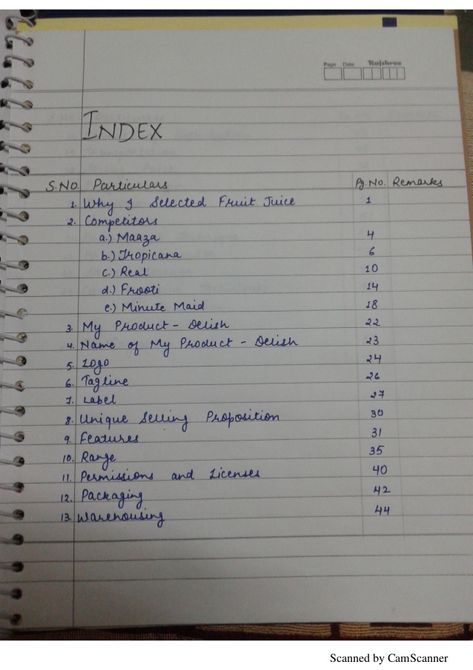 Page Date Rajshree
INDEX
S.No. Particulars Pg.No. Remarks
1. Why I Selected Fruit Juice 1
2. Competitors
a.) Maaza 4
b.) Tropicana 6
c.) Real 10
d.) Frooti 14
e.) Minute Maid 18
3. My Product - Delish 22
4. Name of My Product - Delish 23
5. Logo 24
6. Tagline 26
7. Label 27
8. Unique Selling Proposition 30
9. Features 31
10. Range 35
11. Permissions and Licenses 40
12. Packaging 42
13. Warehousing 44
Scanned by CamScanner